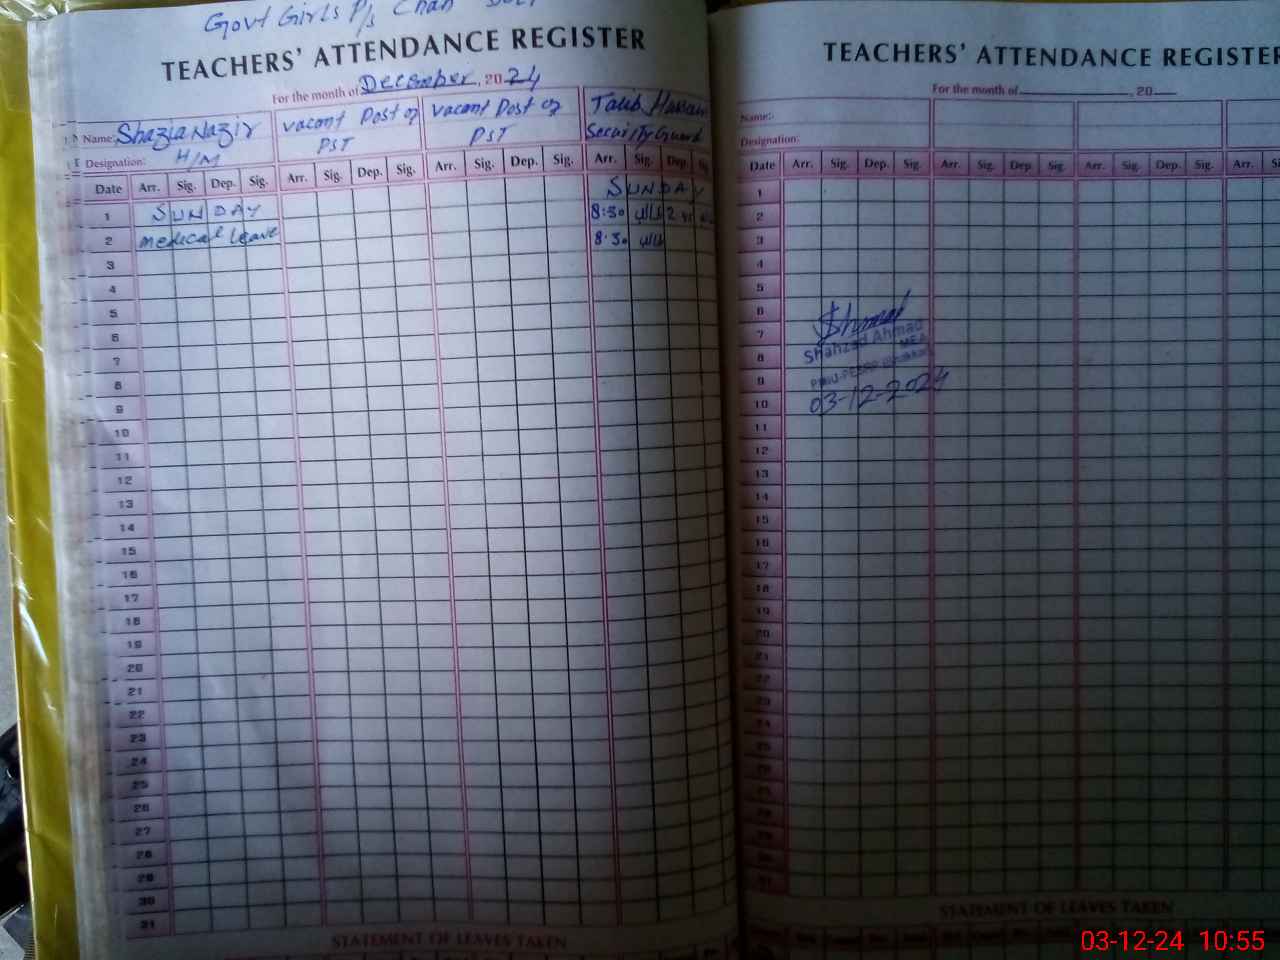 Govt Girls P/s Chah
TEACHERS' ATTENDANCE REGISTER
For the month of December, 2024
Name: Shazia Nazir
vacant Post of
vacant Post of
Talib Hussain
Designation: H/M
PST
PST
Security Guard
Date Arr. Sig. Dep. Sig. Arr. Sig. Dep. Sig. Arr. Sig. Dep. Sig. Arr. Sig. Dep.
1 SUNDAY SUNDAY
2 medical leave 8:30
3 8:30
4
5
6
7
8
9
10
11
12
13
14
15
16
17
18
19
20
21
22
23
24
25
26
27
28
29
30
31
STATEMENT OF LEAVES TAKEN
TEACHERS' ATTENDANCE REGISTER
For the month of , 20
Name:
Designation:
Date Arr. Sig. Dep. Sig. Arr. Sig. Dep. Sig. Arr. Sig. Dep. Sig. Arr.
1
2
3
4
5
6
7
8
9
10
11
12
13
14
15
16
17
18
19
20
21
22
23
24
25
26
Shahzad Ahmad
MEA
03-12-2024
STATEMENT OF LEAVES TAKEN
03-12-24 10:55